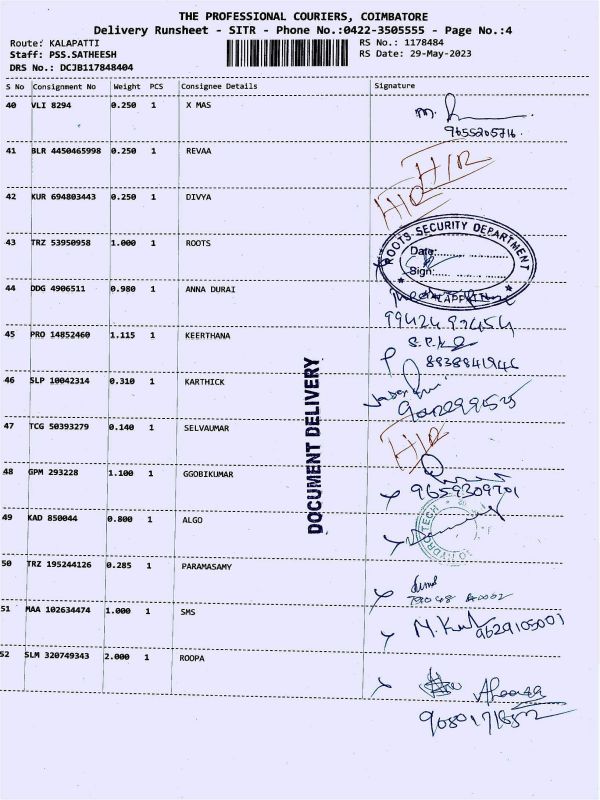 THE PROFESSIONAL COURIERS, COIMBATORE
Delivery Runsheet - SITR - Phone No.:0422-3505555 - Page No.:4
Route: KALAPATTI RS No.: 1178484
Staff: PSS.SATHEESH RS Date: 29-May-2023
DRS No.: DCJB117848404
S No Consignment No Weight PCS Consignee Details Signature
40 VLI 8294 0.250 1 X MAS
9655205716
41 BLR 4450465998 0.250 1 REVAA H/R
42 KUR 694803443 0.250 1 DIVYA
43 TRZ 53950958 1.000 1 ROOTS
ROOTS SECURITY DEPARTMENT
Date:
Sign:
44 DDG 4906511 0.980 1 ANNA DURAI
45 PRO 14852460 1.115 1 KEERTHANA
8938841946
46 SLP 10042314 0.310 1 KARTHICK
47 TCG 50393279 0.140 1 SELVAUMAR H/R
DOCUMENT DELIVERY
48 GPM 293228 1.100 1 GGOBIKUMAR
9659309701
49 KAD 850044 0.800 1 ALGO
50 TRZ 195244126 0.285 1 PARAMASAMY
51 MAA 102634474 1.000 1 SMS
9629105001
52 SLM 320749343 2.000 1 ROOPA